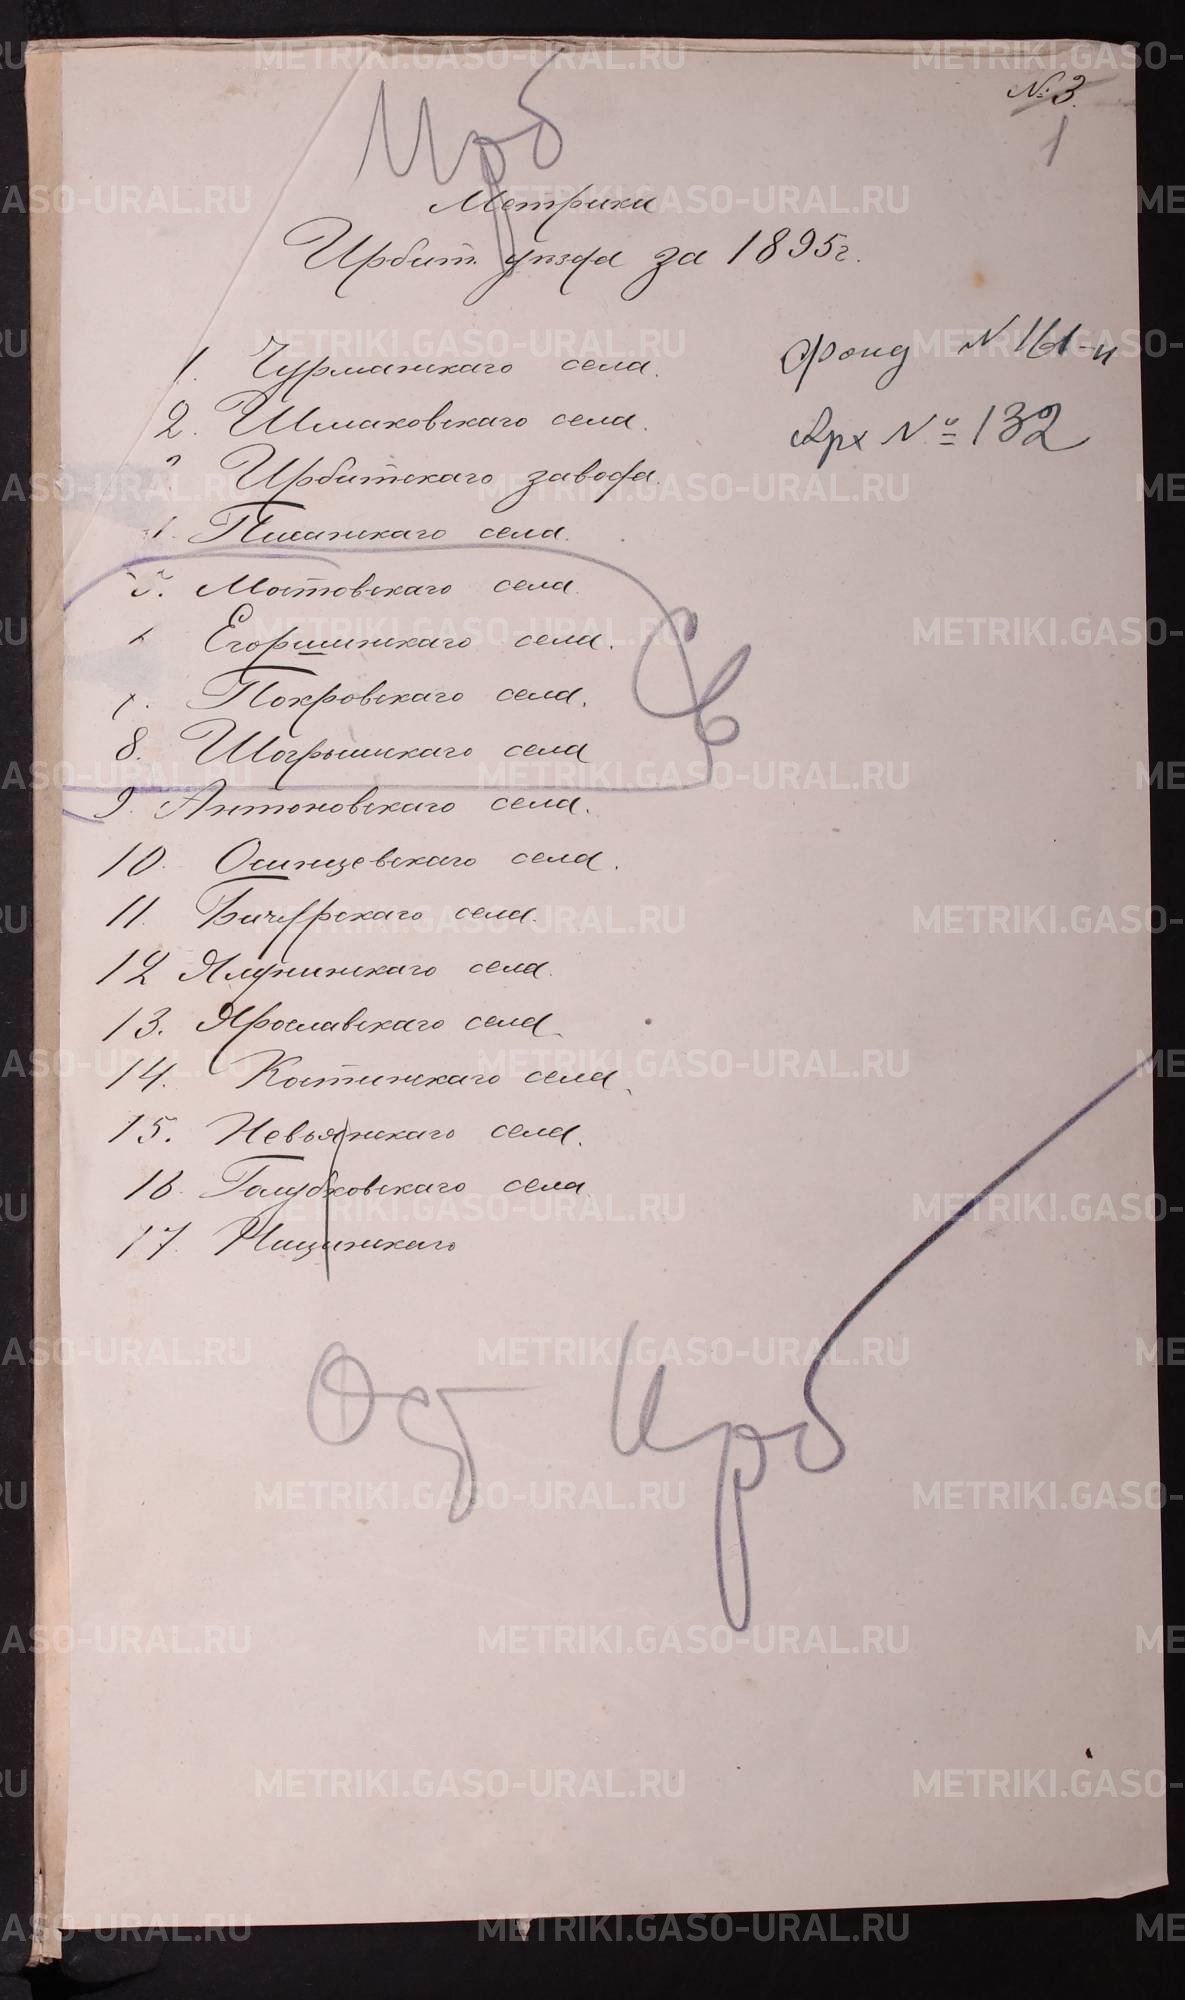 № 3.
1
Ирб
Метрики
Ирбит. уѣзда за 1895 г.
фонд N 161-и
Арх № 132
1. Чурманскаго села.
2. Шмаковскаго села.
3 Ирбитскаго завода.
4. Писанскаго села.
5. Мостовскаго села.
6 Егоршинскаго села.
7. Покровскаго села.
8. Шогрышскаго села
9. Антоновскаго села.
10. Осинцевскаго села.
11. Бичурскаго села.
12 Ялунинскаго села.
13. Ярославскаго села.
14. Костинскаго села.
15. Невьянскаго села.
16. Голубковскаго села
17. Ницинскаго
Ирб
METRIKI.GASO-URAL.RU